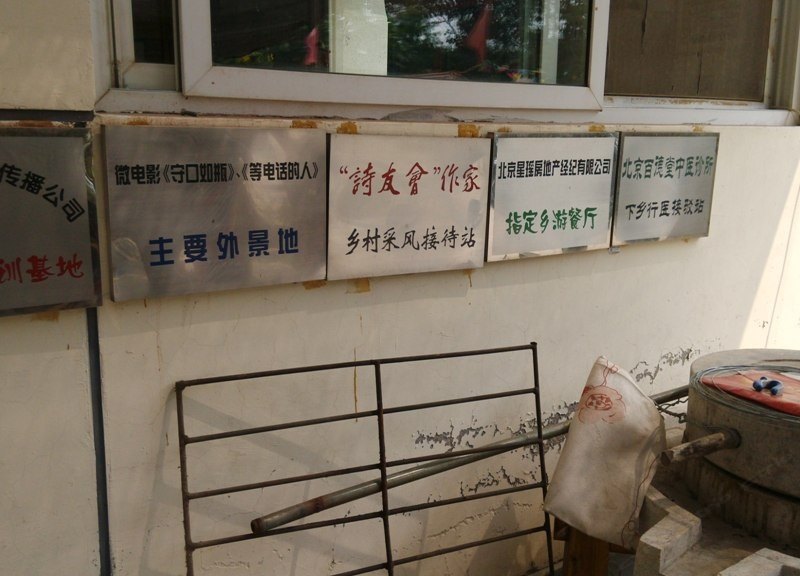 传播公司
训基地
微电影《守口如瓶》、《等电话的人》
主要外景地
“詩友會”作家
乡村采风接待站
北京星瑶房地产经纪有限公司
指定乡游餐厅
北京百德堂中医诊所
下乡行医接致站